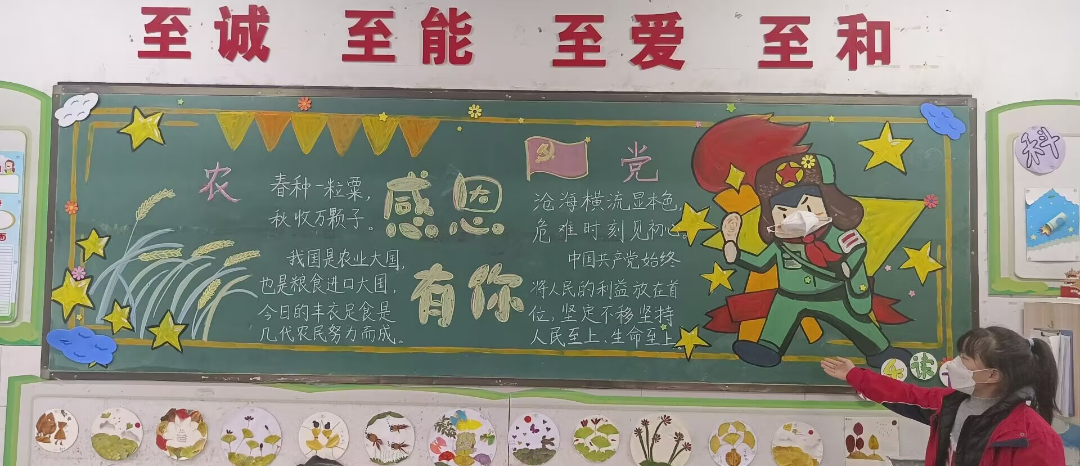 至诚 至能 至爱 至和
农
春种一粒粟，
秋收万颗子。
我国是农业大国，
也是粮食进口大国，
今日的丰衣足食是
几代农民努力而成。
感恩
有你
党
沧海横流显本色，
危难时刻见初心。
中国共产党始终
将人民的利益放在首
位，坚定不移坚持
人民至上、生命至上
科
读